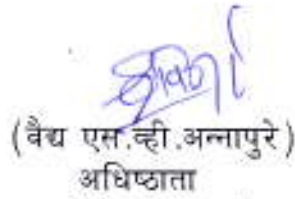 (वैद्य एस.व्ही.अन्नापुरे)
अधिष्ठाता